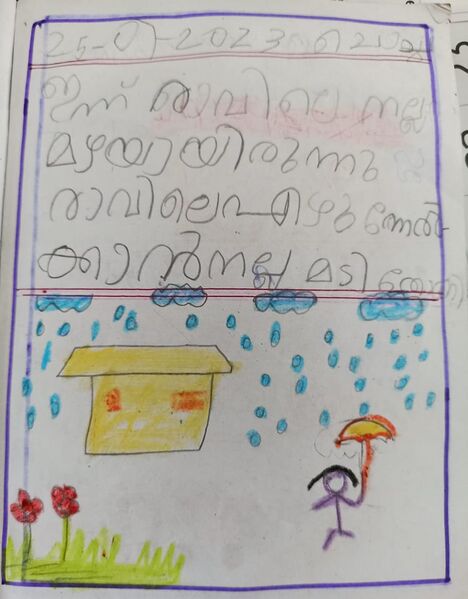 25-07-2023 ചൊവ്വ
ഇന്ന് രാവിലെ നല്ല
മഴയായിരുന്നു
രാവിലെ എഴുന്നേൽ
ക്കാൻ നല്ല മടി തോന്നി